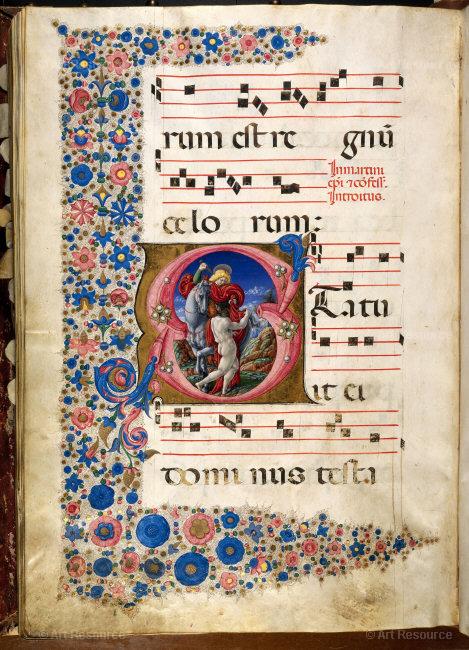 rum est re gnū
In martini
epi ⁊ cōfess.
Introitus.
celo rum:
Statu
it ei
domi nus testa
© Art Resource © Art Resource